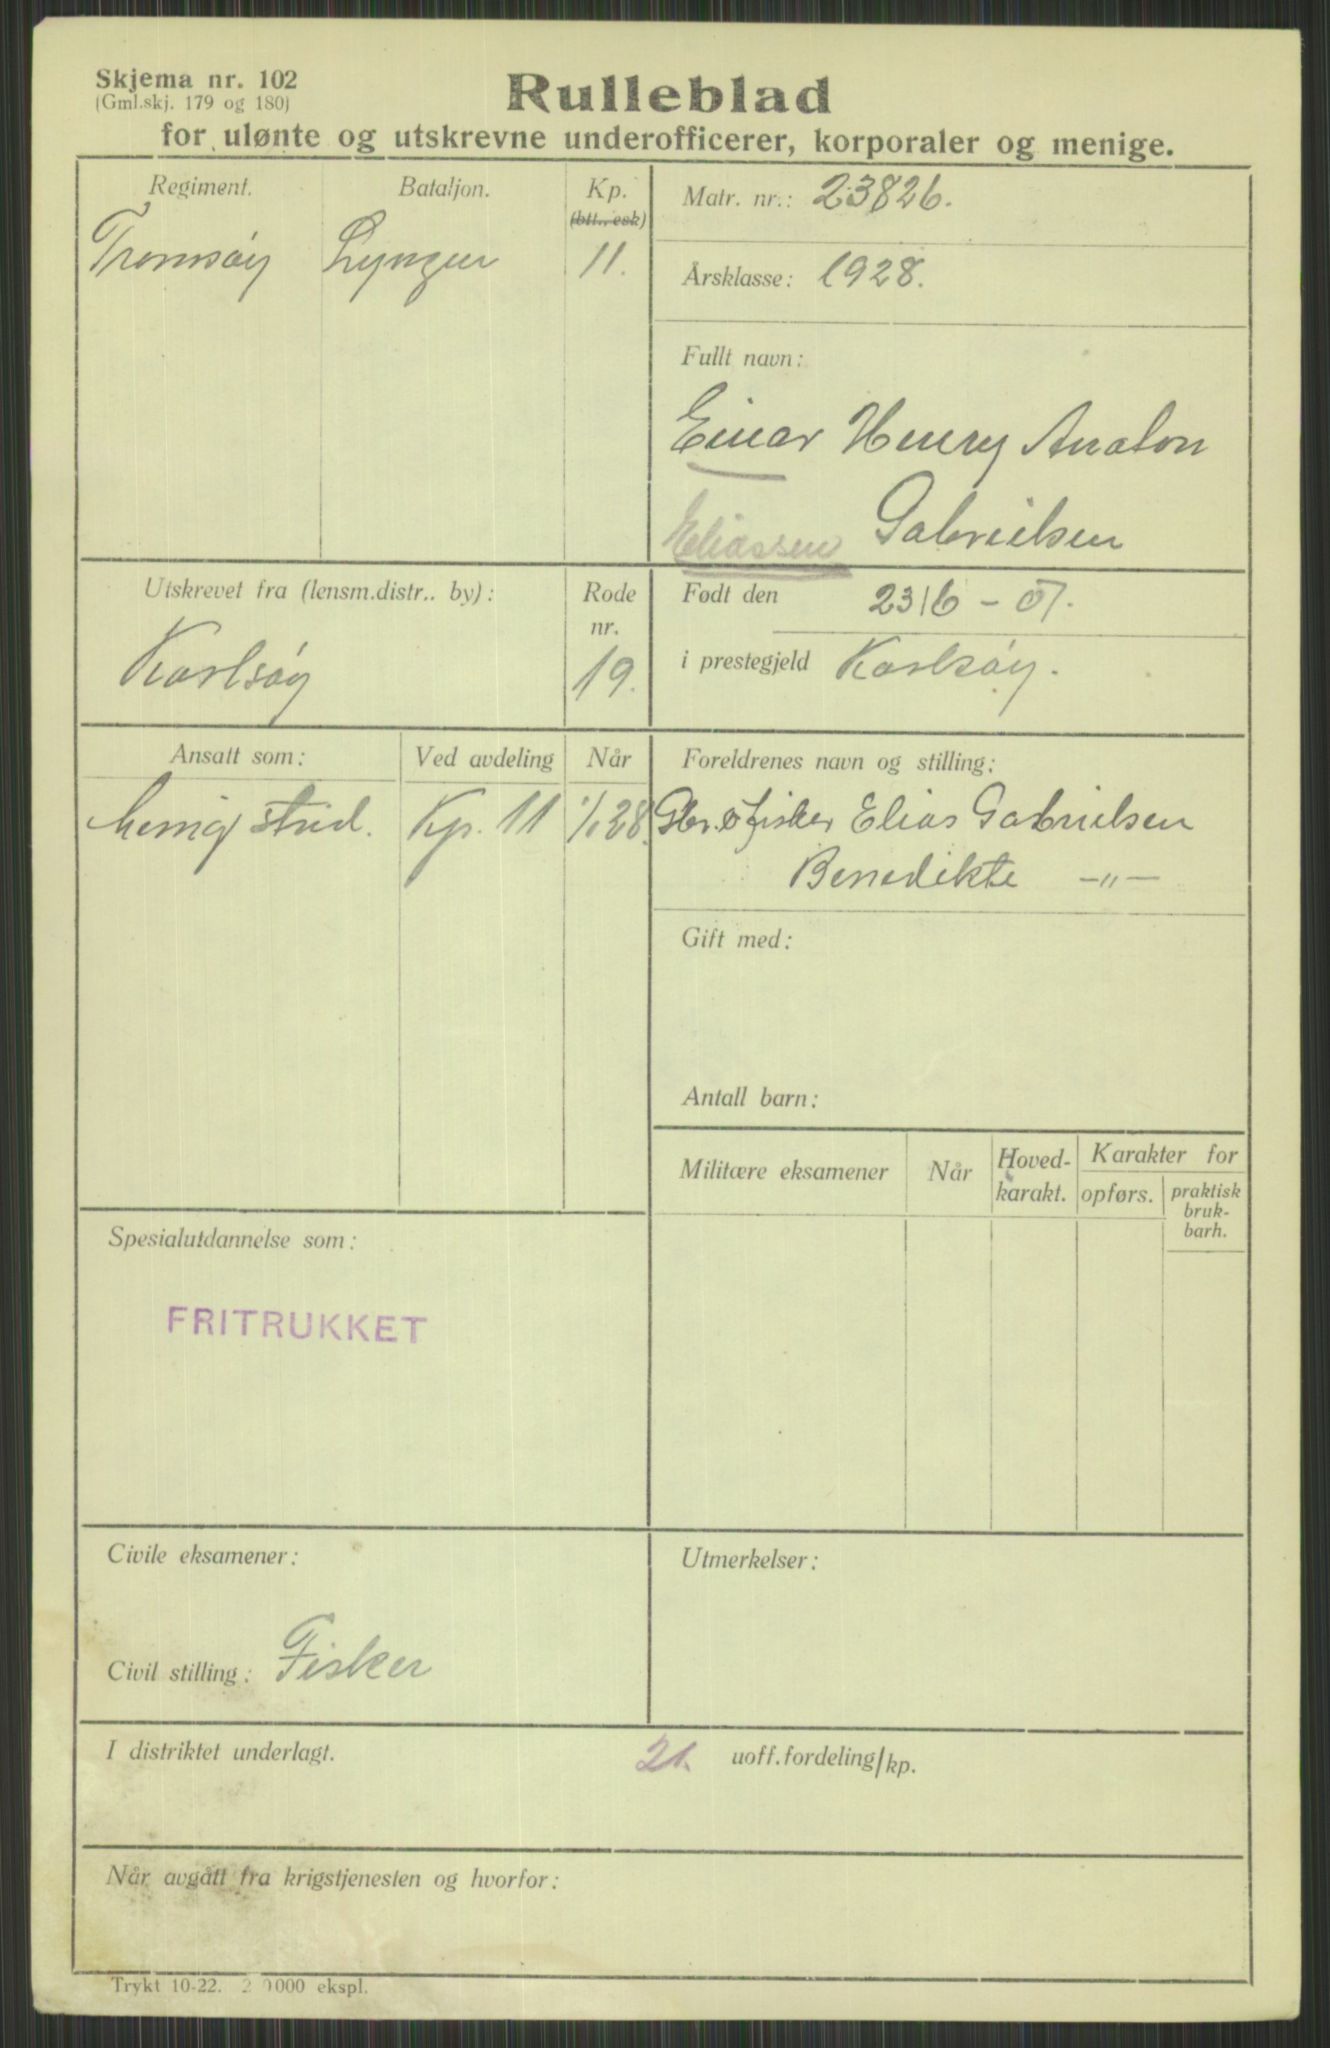 Skjema nr. 102
(Gml.skj. 179 og 180)
Rulleblad
for ulønte og utskrevne underofficerer, korporaler og menige.
Regiment. Bataljon. Kp.
(btt., esk)
Tromsøy Lyngen 11.
Matr. nr.: 23826.
Årsklasse: 1928.
Fullt navn:
Einar Henry Anaton
Eliassen Gabrielsen
Utskrevet fra (lensm.distr.. by): Rode
nr.
Karlsøy 19.
Født den 23/6 - 07.
i prestegjeld Karlsøy.
Ansatt som: Ved avdeling Når
Menig strid. Kp. 11 1/1 28.
Foreldrenes navn og stilling:
Gbr. o fisker Elias Gabrielsen
Benedikte —„—
Gift med:
Antall barn:
Militære eksamener Når Hoved-
karakt. Karakter for
opførs. praktisk
bruk-
barh.
Spesialutdannelse som:
FRITRUKKET
Civile eksamener:
Civil stilling: Fisker
Utmerkelser:
I distriktet underlagt. 21. uoff.fordeling/kp.
Når avgått fra krigstjenesten og hvorfor:
Trykt 10-22. 2 0000 ekspl.